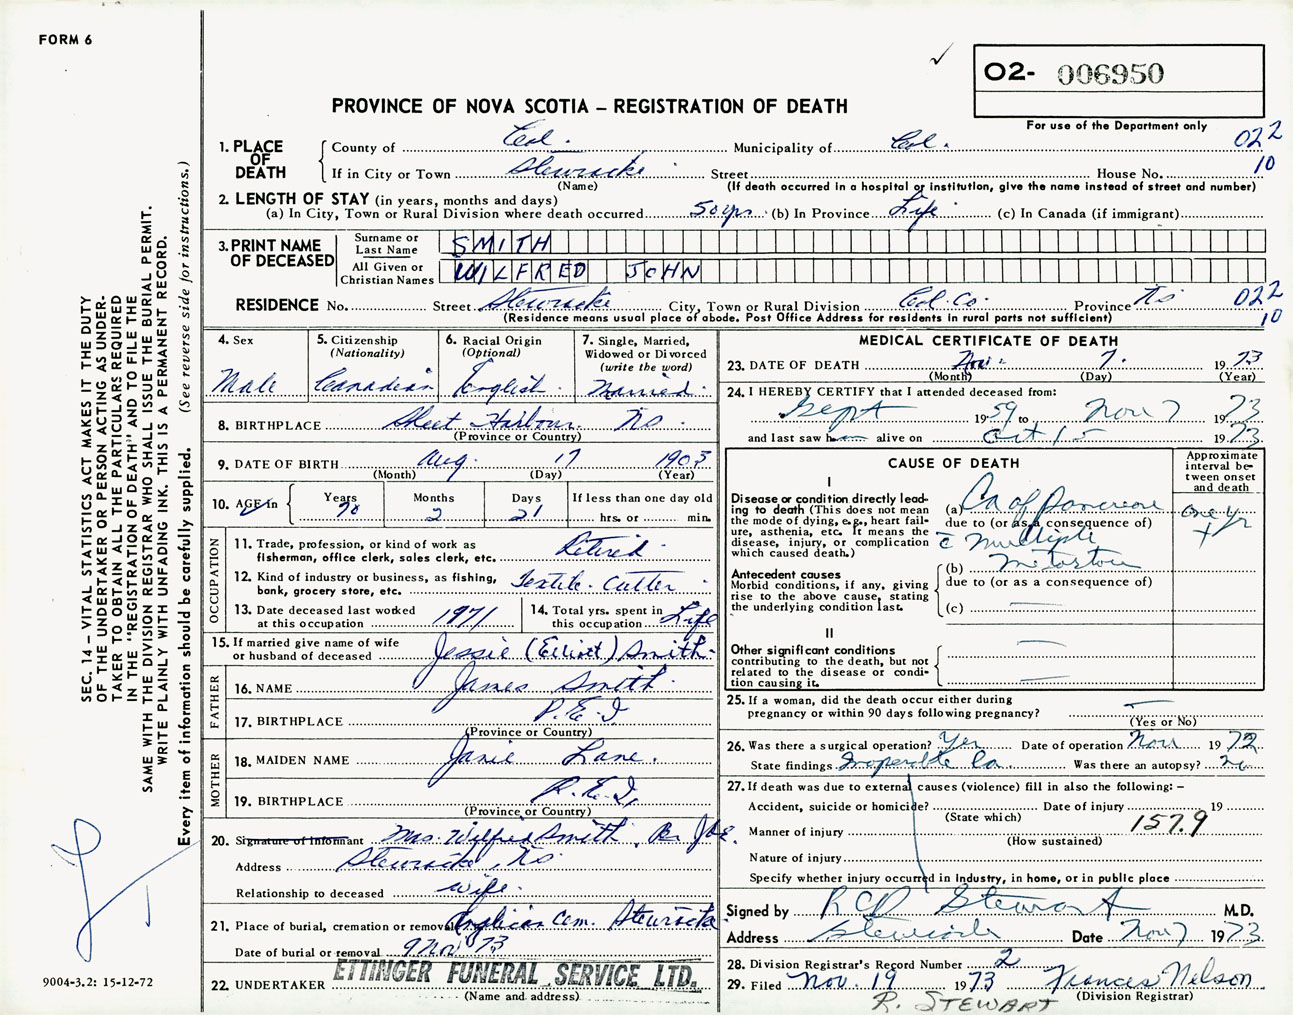 FORM 6
✓
O2- 006950
PROVINCE OF NOVA SCOTIA – REGISTRATION OF DEATH
For use of the Department only
1. PLACE OF DEATH
County of Col. Municipality of Col. 022
If in City or Town Stewiacke Street House No. 10
(Name) (If death occurred in a hospital or institution, give the name instead of street and number)
2. LENGTH OF STAY (in years, months and days)
(a) In City, Town or Rural Division where death occurred 50 yrs. (b) In Province Life (c) In Canada (if immigrant)
3. PRINT NAME OF DECEASED
Surname or Last Name SMITH
All Given or Christian Names WILFRED JOHN
RESIDENCE No. Street Stewiacke City, Town or Rural Division Col. Co. Province NS 022
(Residence means usual place of abode. Post Office Address for residents in rural parts not sufficient) 10
4. Sex Male
5. Citizenship (Nationality) Canadian
6. Racial Origin (Optional) English
7. Single, Married, Widowed or Divorced (write the word) Married
8. BIRTHPLACE Sheet Harbour NS
(Province or Country)
9. DATE OF BIRTH Aug. 17 1903
(Month) (Day) (Year)
10. AGE in Years 70 Months 2 Days 21 If less than one day old hrs. or min.
OCCUPATION
11. Trade, profession, or kind of work as fisherman, office clerk, sales clerk, etc. Retired
12. Kind of industry or business, as fishing, bank, grocery store, etc. Textile Cutter
13. Date deceased last worked at this occupation 1971
14. Total yrs. spent in this occupation Life
15. If married give name of wife or husband of deceased Jessie (Elliot) Smith
FATHER
16. NAME James Smith
17. BIRTHPLACE P.E.I
(Province or Country)
MOTHER
18. MAIDEN NAME Janie Lane.
19. BIRTHPLACE P.E.I.
(Province or Country)
20. Signature of informant Mrs. Wilfred Smith
Address Stewiacke, NS.
Relationship to deceased wife.
21. Place of burial, cremation or removal Anglican Cem. Stewiacke
Date of burial or removal 9 Nov 73
22. UNDERTAKER ETTINGER FUNERAL SERVICE LTD.
(Name and address)
MEDICAL CERTIFICATE OF DEATH
23. DATE OF DEATH Nov. 7. 1973
(Month) (Day) (Year)
24. I HEREBY CERTIFY that I attended deceased from:
Sept 1959 to Nov 7 1973
and last saw h alive on Oct 15 1973
CAUSE OF DEATH
Approximate interval between onset and death
I
Disease or condition directly leading to death (This does not mean the mode of dying, e.g., heart failure, asthenia, etc. It means the disease, injury, or complication which caused death.)
(a) Ca of Pancreas one yr +
due to (or as a consequence of)
c̄ multiple
(b)
due to (or as a consequence of)
(c)
Antecedent causes
Morbid conditions, if any, giving rise to the above cause, stating the underlying condition last.
II
Other significant conditions contributing to the death, but not related to the disease or condition causing it.
25. If a woman, did the death occur either during pregnancy or within 90 days following pregnancy?
(Yes or No)
26. Was there a surgical operation? Yes Date of operation Nov 1972
State findings Inoperable Ca. Was there an autopsy? no
27. If death was due to external causes (violence) fill in also the following: –
Accident, suicide or homicide? Date of injury 19
(State which) 157.9
Manner of injury
(How sustained)
Nature of injury
Specify whether injury occurred in industry, in home, or in public place
Signed by Stewart M.D.
Address Stewiacke Date Nov 7 1973
28. Division Registrar's Record Number 2
29. Filed Nov. 19 1973 Frances Nelson
(Division Registrar)
R. STEWART
SEC. 14 – VITAL STATISTICS ACT MAKES IT THE DUTY
OF THE UNDERTAKER OR PERSON ACTING AS UNDER-
TAKER TO OBTAIN ALL THE PARTICULARS REQUIRED
IN THE "REGISTRATION OF DEATH" AND TO FILE THE
SAME WITH THE DIVISION REGISTRAR WHO SHALL ISSUE THE BURIAL PERMIT.
WRITE PLAINLY WITH UNFADING INK. THIS IS A PERMANENT RECORD.
Every item of information should be carefully supplied. (See reverse side for instructions.)
9004-3.2: 15-12-72